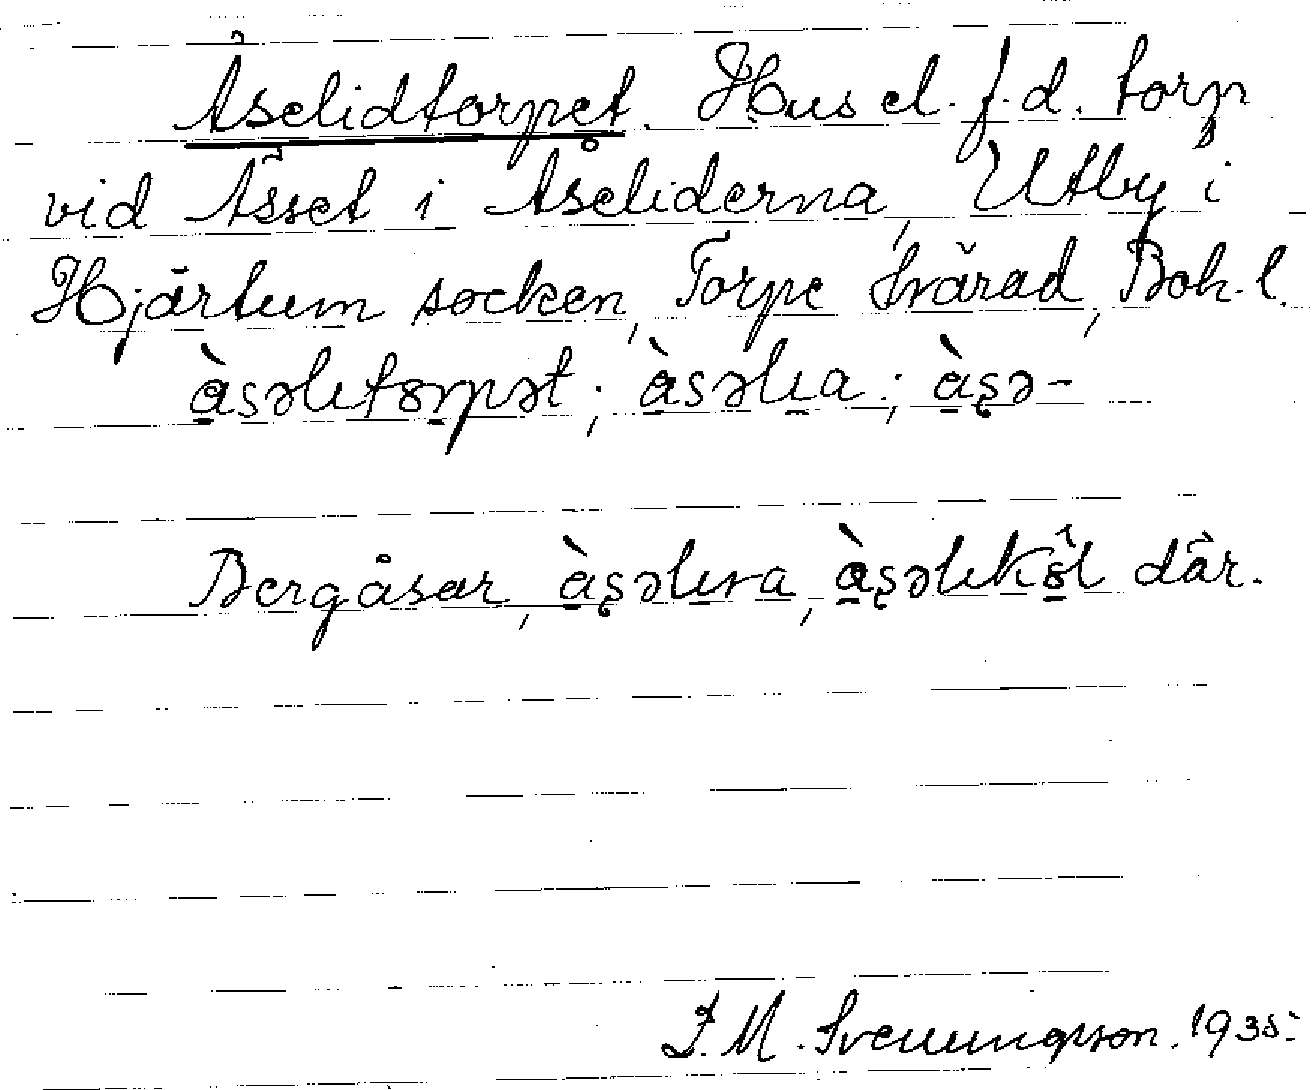 Åselidtorpet. Hus el. f.d. torp
vid Åsset i Åseliderna, Utby i
Hjärtum socken, Torpe härad, Boh. l.
àsəlıtorpət; àsəlıa; àsə-
Bergåsar, àsəlıra, àsəlıkôl där.
J. M. Svenungsson. 1935.